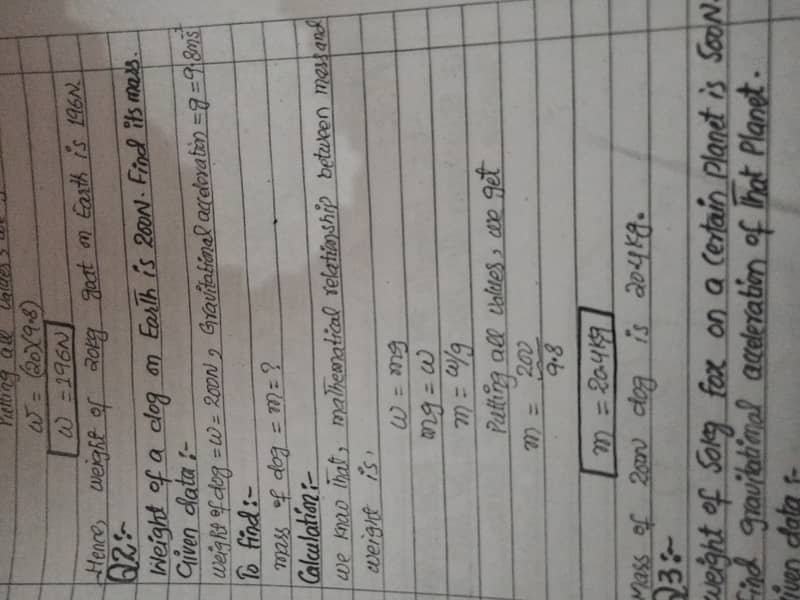 Putting all values, we
w = (20)(9.8)
w = 196N
Hence, weight of 20kg goat on Earth is 196N
Q2:-
Weight of a dog on Earth is 200N. Find its mass.
Given data:-
weight of dog = w = 200N, Gravitational acceleration = g = 9.8ms⁻²
To find:-
mass of dog = m = ?
Calculation:-
we know that, mathematical relationship between mass and
weight is,
w = mg
mg = w
m = w/g
Putting all values, we get
m = 200/9.8
m = 20.4kg
Mass of 200N dog is 20.4kg.
Q3:-
weight of 50kg fox on a certain Planet is 500N.
Find gravitational acceleration of that Planet.
Given data:-